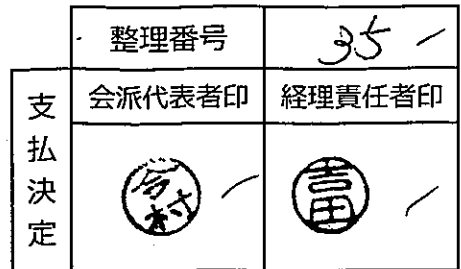 整理番号 35
支払決定
会派代表者印 経理責任者印
今村 吉田